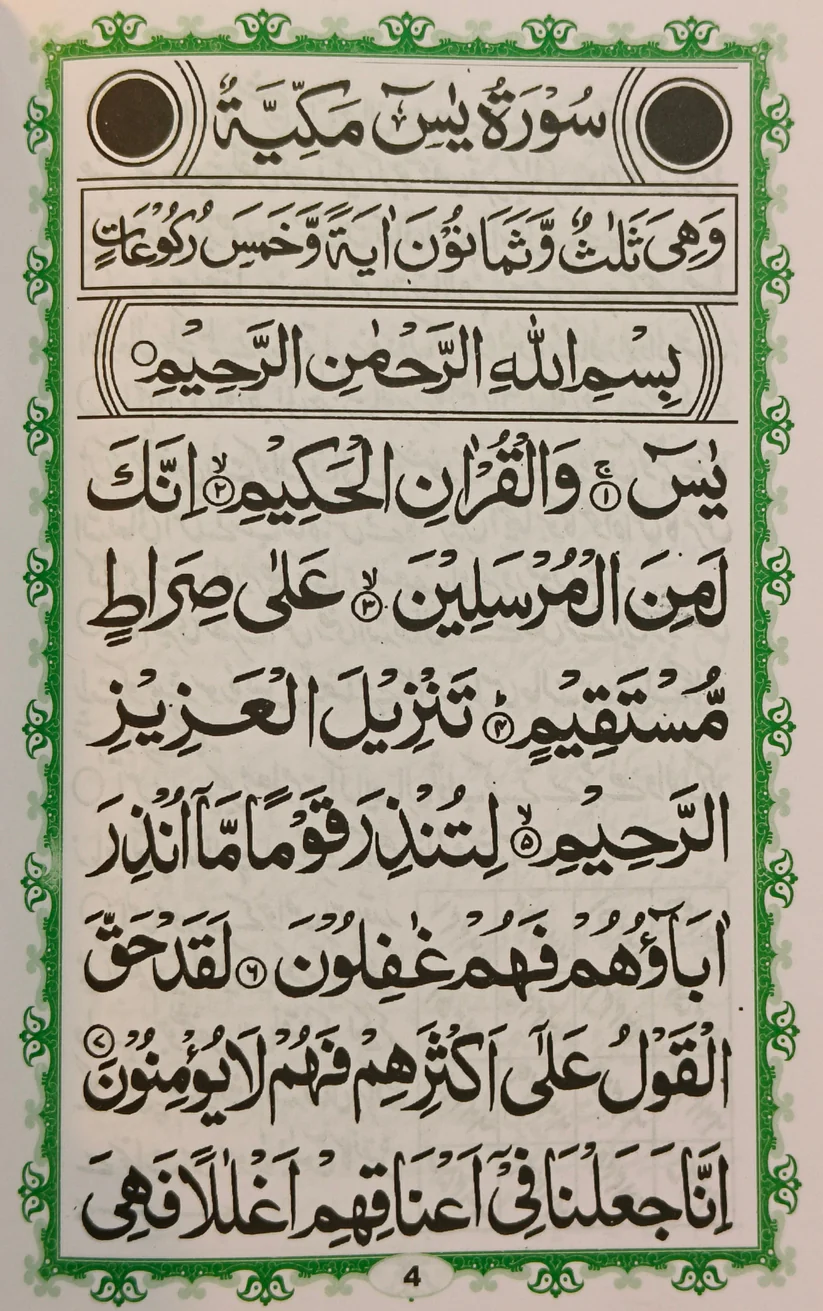 سُوْرَةُ يٰسٓ مَكِّيَّةٌ
وَهِىَ ثَلٰثٌ وَّثَمَانُوْنَ اٰيَةً وَّخَمْسِ رُكُوْعَاتٍ
بِسْمِ اللّٰهِ الرَّحْمٰنِ الرَّحِيْمِ ○
يٰسٓ ۚ﴿۱﴾ وَالْقُرْاٰنِ الْحَكِيْمِ ۙ﴿۲﴾ اِنَّكَ
لَمِنَ الْمُرْسَلِيْنَ ۙ﴿۳﴾ عَلٰى صِرَاطٍ
مُّسْتَقِيْمٍ ؕ﴿۴﴾ تَنْزِيْلَ الْعَزِيْزِ
الرَّحِيْمِ ۙ﴿۵﴾ لِتُنْذِرَ قَوْمًا مَّاۤ اُنْذِرَ
اٰبَآؤُهُمْ فَهُمْ غٰفِلُوْنَ ﴿۶﴾ لَقَدْ حَقَّ
الْقَوْلُ عَلٰۤى اَكْثَرِهِمْ فَهُمْ لَا يُؤْمِنُوْنَ ﴿۷﴾
اِنَّا جَعَلْنَا فِىْۤ اَعْنَاقِهِمْ اَغْلٰلًا فَهِىَ
4